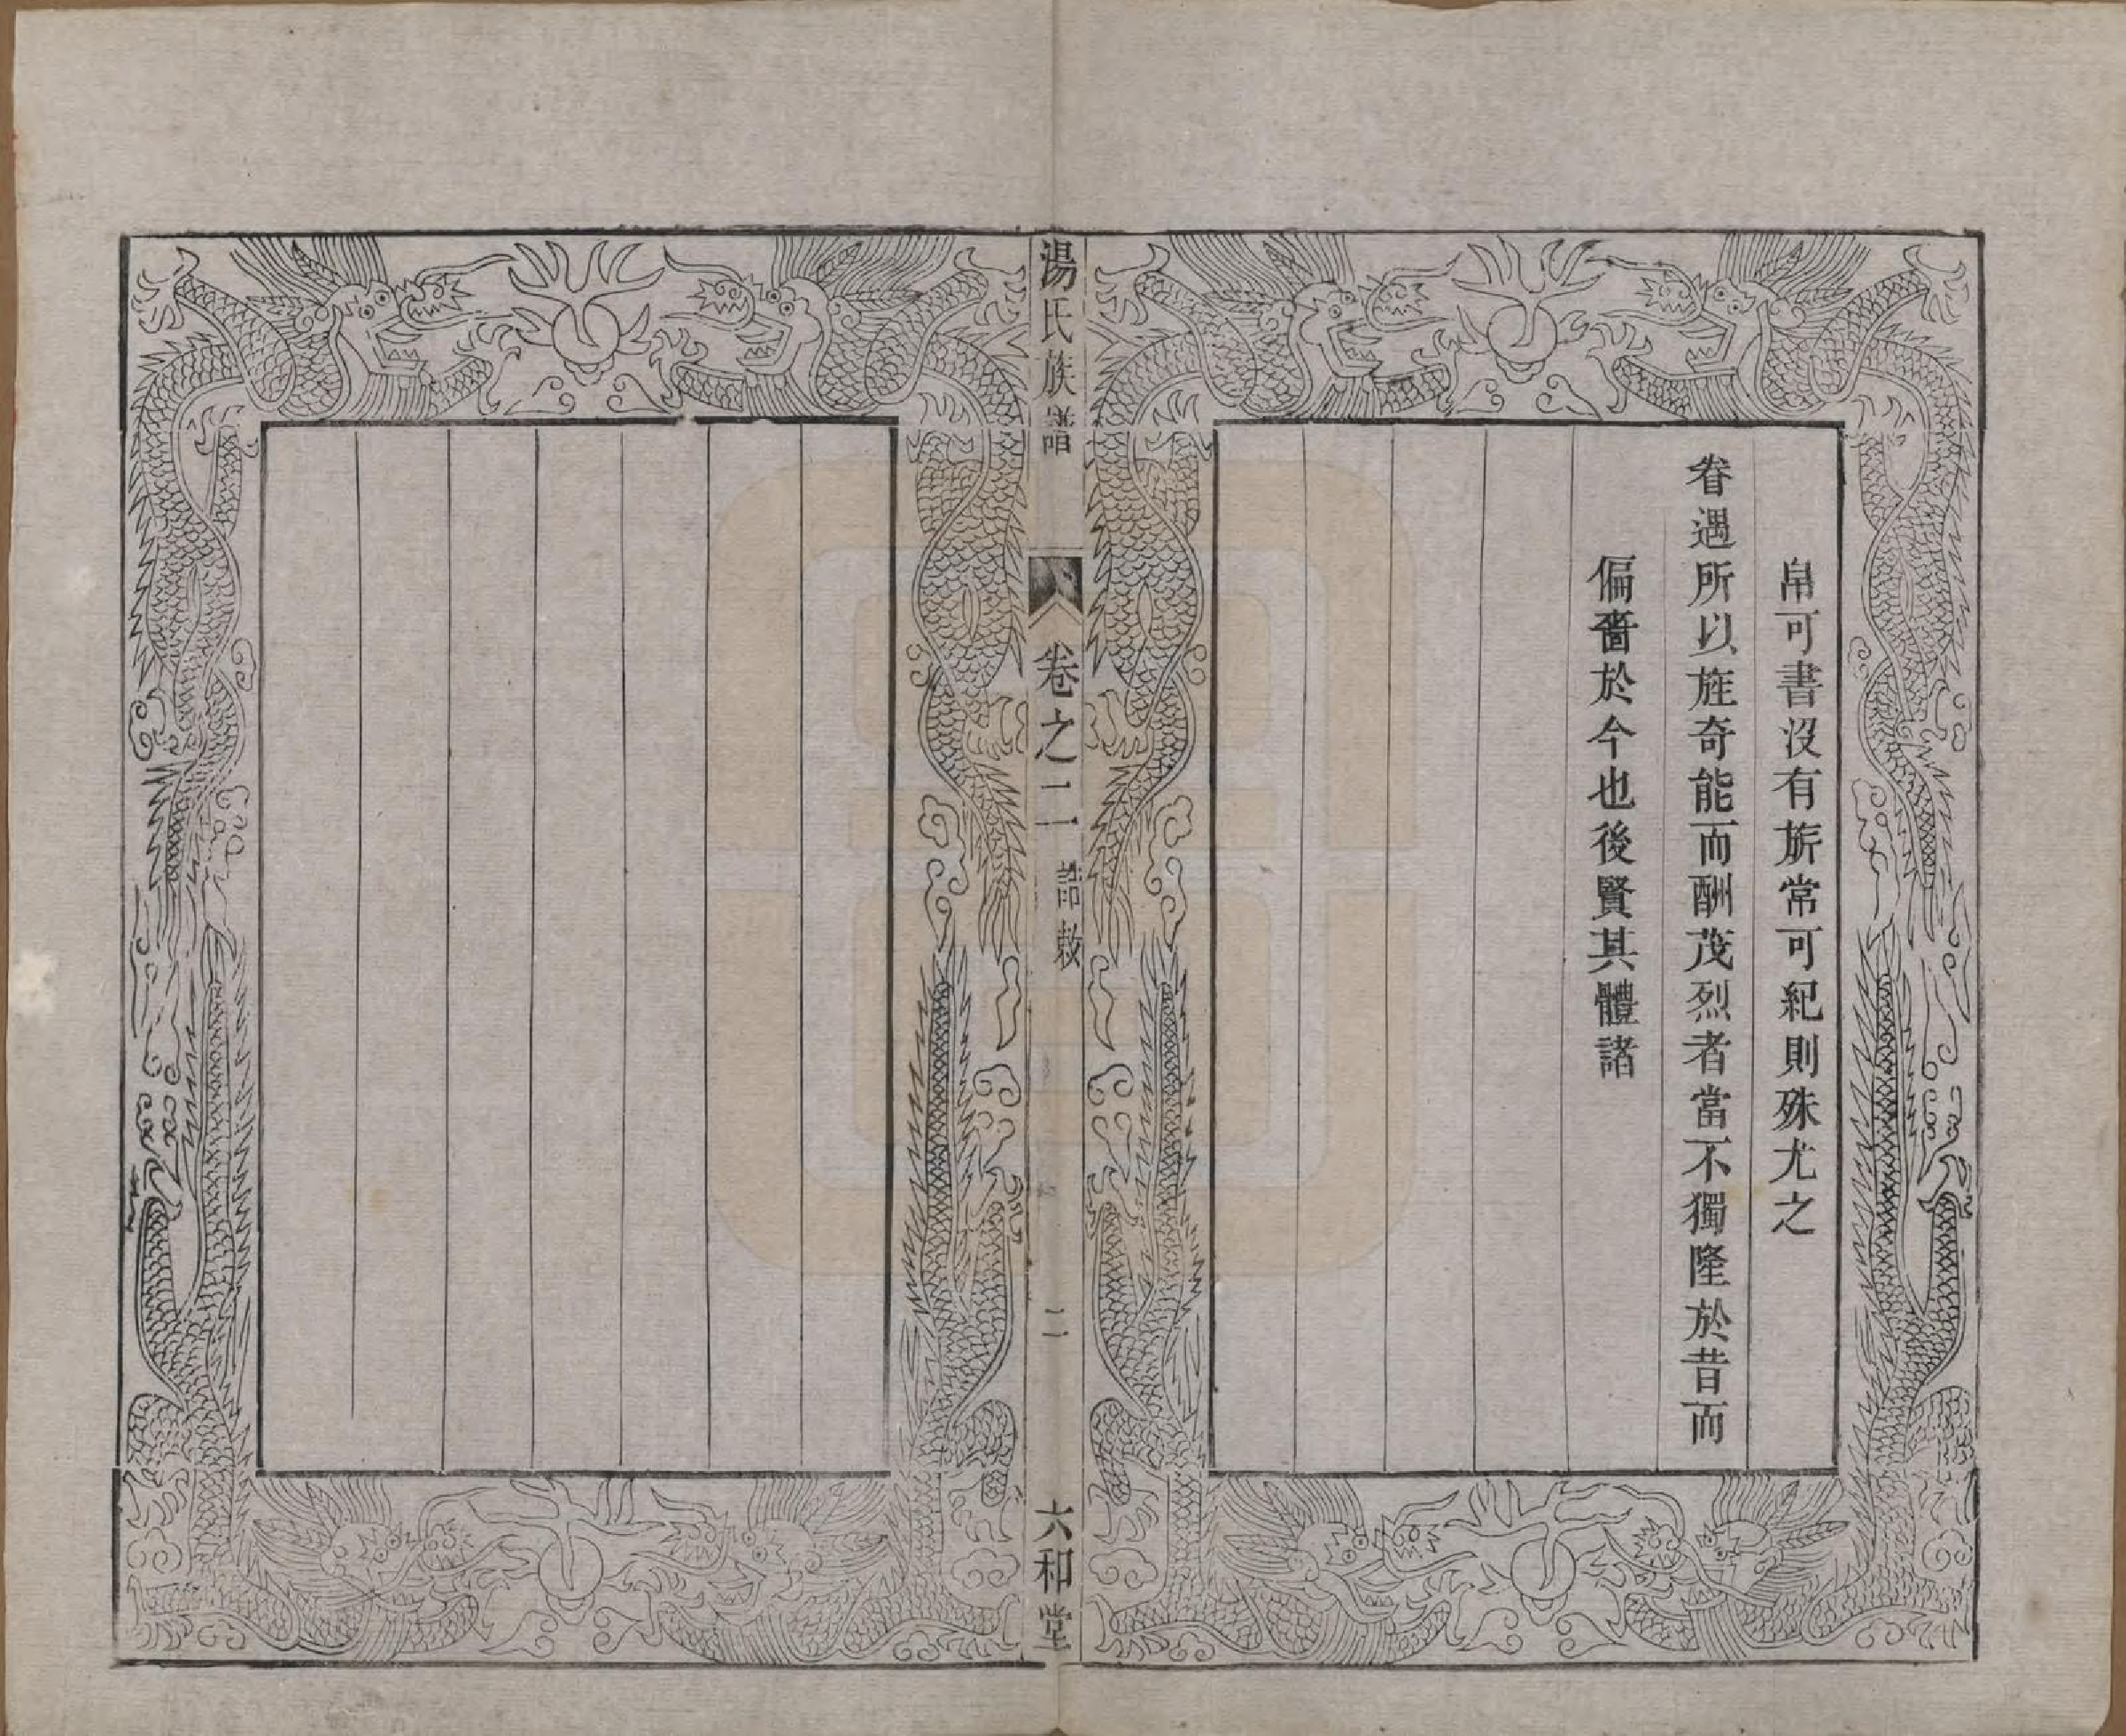 帛可書沒有旂常可紀則殊尤之
眷遇所以旌奇能而酬茂烈者當不獨隆於昔而
偏嗇於今也後賢其體諸
湯氏族譜
卷之二
誥敕
二
六和堂